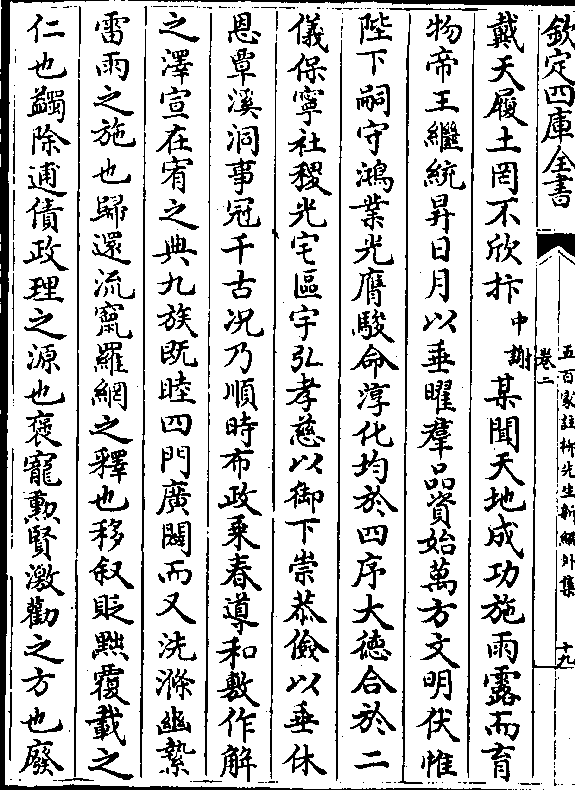 欽定四庫全書
五百家註柳先生新編外集
卷二
十九
戴天履土罔不欣抃中謝某聞天地成功施雨露而育
物帝王繼統昇日月以垂曜羣品資始萬方文明伏惟
陛下嗣守鴻業光膺駿命淳化均於四序大德合於二
儀保寧社稷光宅區宇弘孝慈以御下崇恭儉以垂休
恩覃溪洞事冠千古况乃順時布政乘春導和敷作解
之澤宣在宥之典九族既睦四門廣闢而又洗滌幽縶
雷雨之施也歸還流竄羅網之釋也移叙貶黜覆載之
仁也蠲除逋債政理之源也褒寵勲賢激勸之方也廢